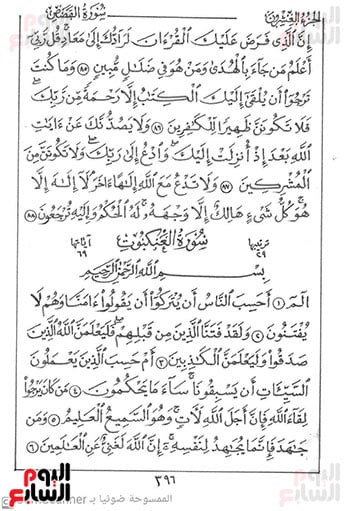 الجزء العشرون
سورة القصص
إِنَّ الَّذِى فَرَضَ عَلَيْكَ الْقُرْءَانَ لَرَآدُّكَ إِلَىٰ مَعَادٍ قُل رَّبِّىٓ
أَعْلَمُ مَن جَآءَ بِالْهُدَىٰ وَمَنْ هُوَ فِى ضَلَٰلٍ مُّبِينٍ ٨٥ وَمَا كُنتَ
تَرْجُوٓا۟ أَن يُلْقَىٰٓ إِلَيْكَ الْكِتَٰبُ إِلَّا رَحْمَةً مِّن رَّبِّكَ
فَلَا تَكُونَنَّ ظَهِيرًا لِّلْكَٰفِرِينَ ٨٦ وَلَا يَصُدُّنَّكَ عَنْ ءَايَٰتِ
اللَّهِ بَعْدَ إِذْ أُنزِلَتْ إِلَيْكَ وَادْعُ إِلَىٰ رَبِّكَ وَلَا تَكُونَنَّ مِنَ
الْمُشْرِكِينَ ٨٧ وَلَا تَدْعُ مَعَ اللَّهِ إِلَٰهًا ءَاخَرَ لَآ إِلَٰهَ إِلَّا
هُوَ كُلُّ شَىْءٍ هَالِكٌ إِلَّا وَجْهَهُۥ لَهُ الْحُكْمُ وَإِلَيْهِ تُرْجَعُونَ ٨٨
ترتيبها ٢٩
سورة العنكبوت
آياتها ٦٩
بِسْمِ اللَّهِ الرَّحْمَٰنِ الرَّحِيمِ
الٓمٓ ١ أَحَسِبَ النَّاسُ أَن يُتْرَكُوٓا۟ أَن يَقُولُوٓا۟ ءَامَنَّا وَهُمْ لَا
يُفْتَنُونَ ٢ وَلَقَدْ فَتَنَّا الَّذِينَ مِن قَبْلِهِمْ فَلَيَعْلَمَنَّ اللَّهُ الَّذِينَ
صَدَقُوا۟ وَلَيَعْلَمَنَّ الْكَٰذِبِينَ ٣ أَمْ حَسِبَ الَّذِينَ يَعْمَلُونَ
السَّيِّـَٔاتِ أَن يَسْبِقُونَا سَآءَ مَا يَحْكُمُونَ ٤ مَن كَانَ يَرْجُوا۟
لِقَآءَ اللَّهِ فَإِنَّ أَجَلَ اللَّهِ لَءَاتٍ وَهُوَ السَّمِيعُ الْعَلِيمُ ٥ وَمَن
جَٰهَدَ فَإِنَّمَا يُجَٰهِدُ لِنَفْسِهِۦٓ إِنَّ اللَّهَ لَغَنِىٌّ عَنِ الْعَٰلَمِينَ ٦
٣٩٦
اليوم السابع
الممسوحة ضوئيا بـ CamScanner